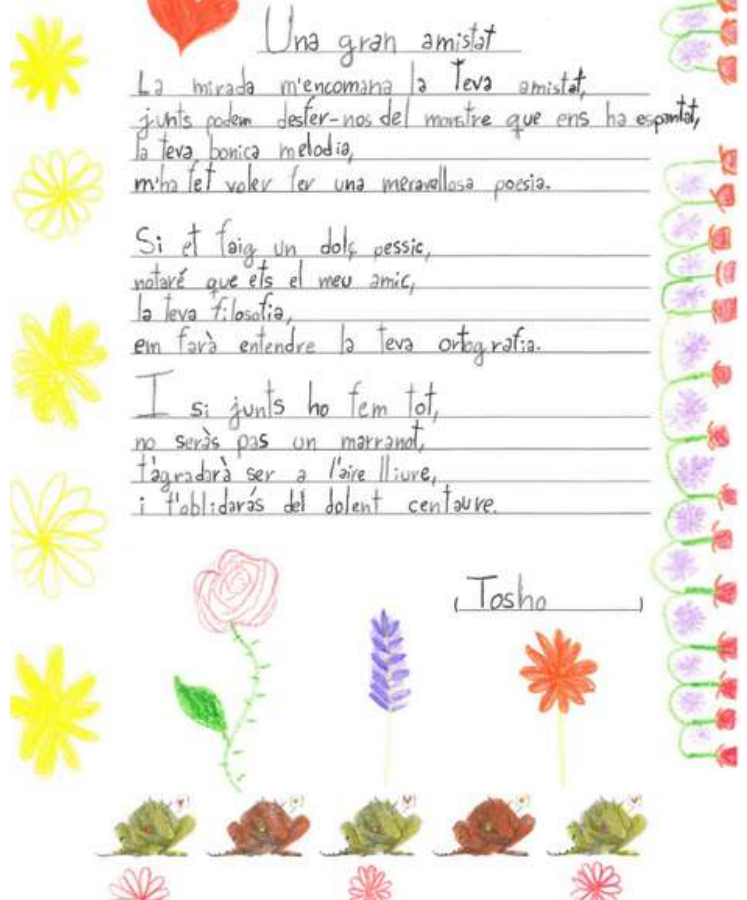 Una gran amistat
La mirada m'encomana la teva amistat,
junts podem desfer-nos del monstre que ens ha espantat,
la teva bonica melodia,
m'ha fet voler fer una meravellosa poesia.
Si et faig un dolç pessic,
notaré que ets el meu amic,
la teva filosofia,
em farà entendre la teva ortografia.
I si junts ho fem tot,
no seràs pas un marranot,
t'agradarà ser a l'aire lliure,
i t'oblidarás del dolent centaure.
(Tosho)